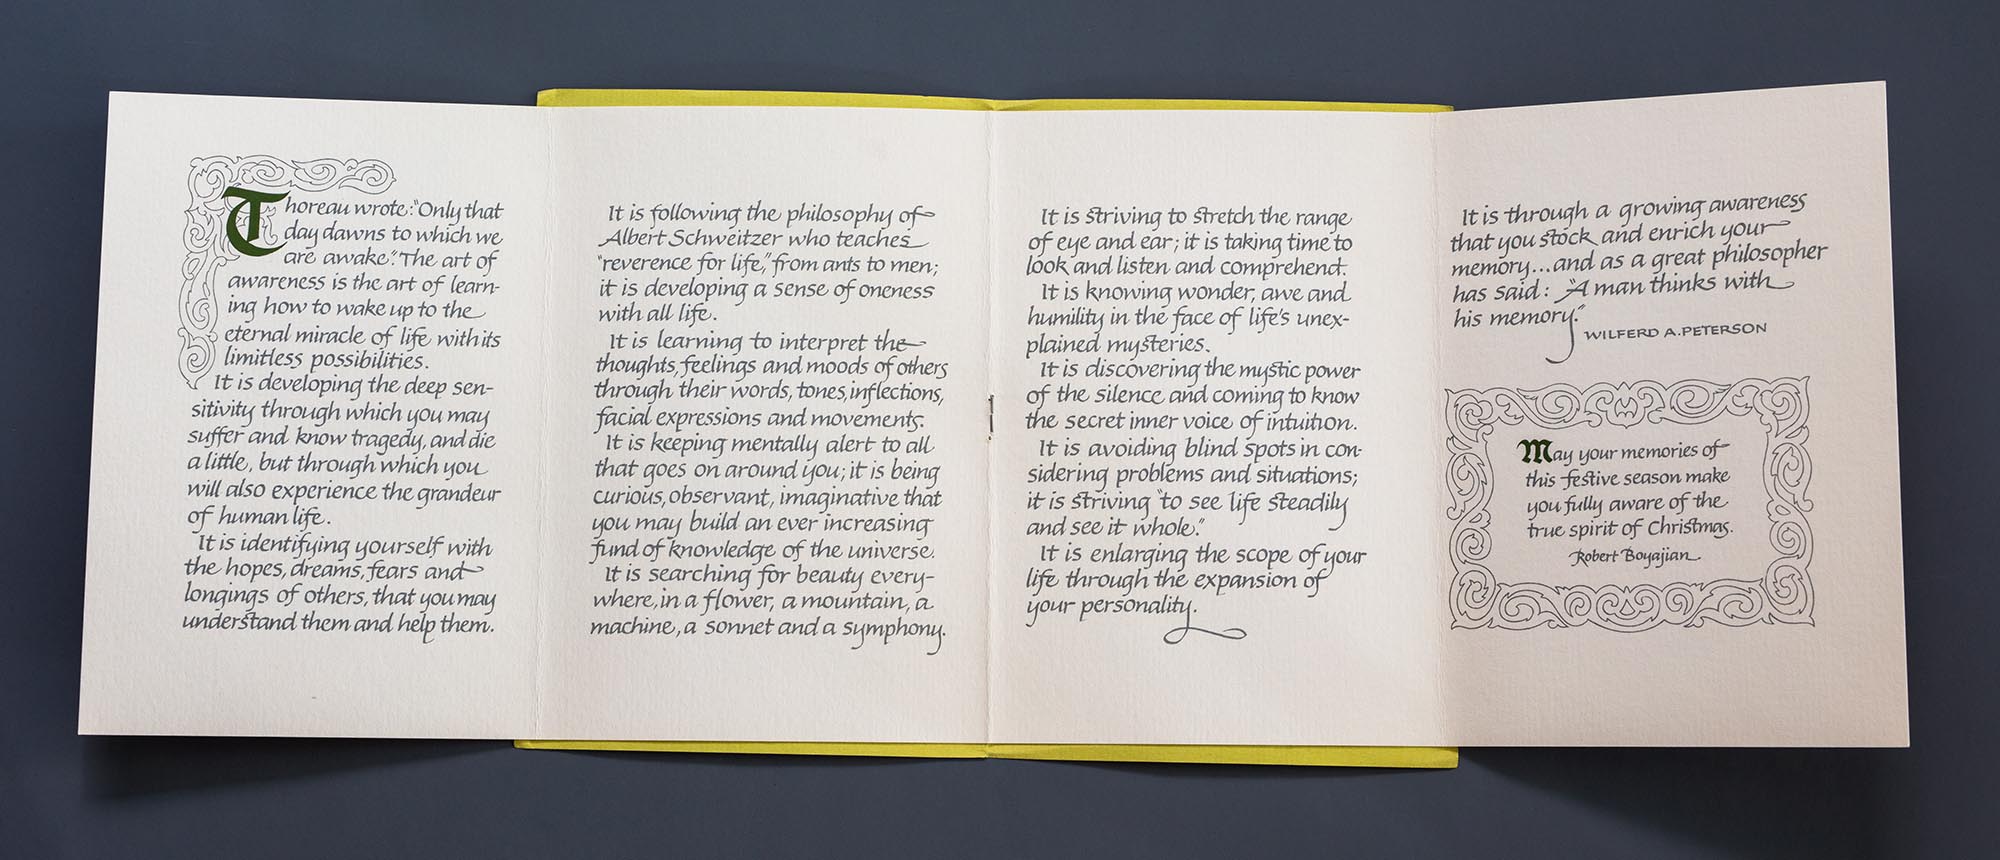 Thoreau wrote: "Only that
day dawns to which we
are awake." The art of
awareness is the art of learn-
ing how to wake up to the
eternal miracle of life with its
limitless possibilities.
It is developing the deep sen-
sitivity through which you may
suffer and know tragedy, and die
a little, but through which you
will also experience the grandeur
of human life.
It is identifying yourself with
the hopes, dreams, fears and
longings of others, that you may
understand them and help them.
It is following the philosophy of
Albert Schweitzer who teaches
"reverence for life," from ants to men;
it is developing a sense of oneness
with all life.
It is learning to interpret the
thoughts, feelings and moods of others
through their words, tones, inflections,
facial expressions and movements.
It is keeping mentally alert to all
that goes on around you; it is being
curious, observant, imaginative that
you may build an ever increasing
fund of knowledge of the universe.
It is searching for beauty every-
where, in a flower, a mountain, a
machine, a sonnet and a symphony.
It is striving to stretch the range
of eye and ear; it is taking time to
look and listen and comprehend.
It is knowing wonder, awe and
humility in the face of life's unex-
plained mysteries.
It is discovering the mystic power
of the silence and coming to know
the secret inner voice of intuition.
It is avoiding blind spots in con-
sidering problems and situations;
it is striving "to see life steadily
and see it whole."
It is enlarging the scope of your
life through the expansion of
your personality.
It is through a growing awareness
that you stock and enrich your
memory... and as a great philosopher
has said: "A man thinks with
his memory."
WILFERD A. PETERSON
May your memories of
this festive season make
you fully aware of the
true spirit of Christmas.
Robert Boyajian